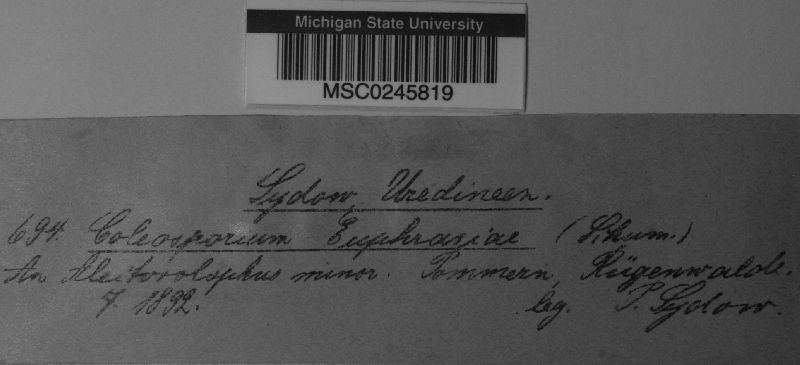 Michigan State University
MSC0245819
Sydow, Uredineen.
694. Coleosporium Euphrasiae (Schum.)
An Alectorolophus minor. Pommern, Rügenwalde.
7. 1892. leg. P. Sydow.